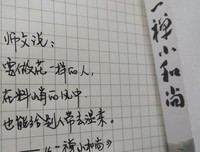 师父说：
要做花一样的人，
在料峭的风中
也能给别人带去温柔。
——《一禅小和尚》
一禅小和尚